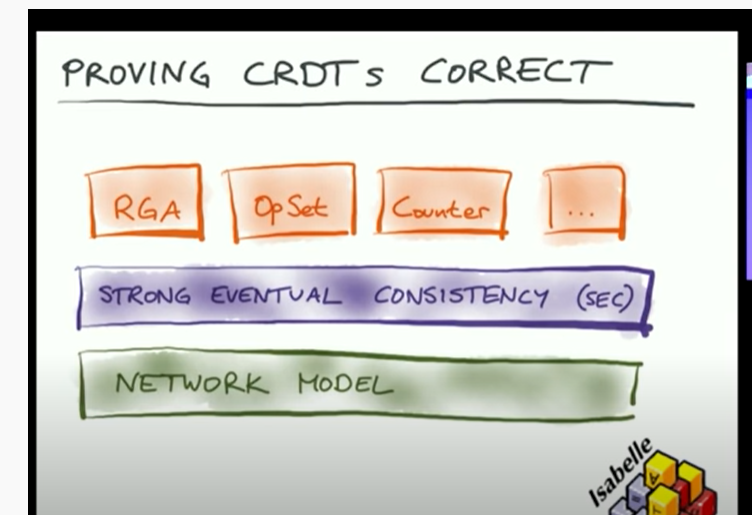 PROVING CRDTs CORRECT
RGA
OpSet
Counter
...
STRONG EVENTUAL CONSISTENCY (SEC)
NETWORK MODEL
Isabelle